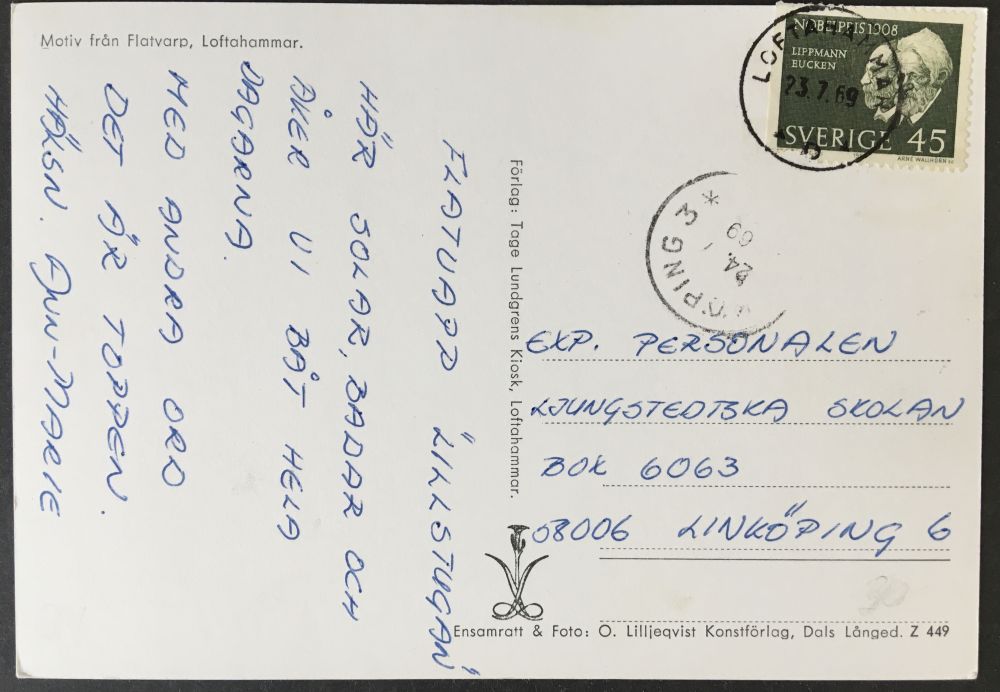 Motiv från Flatvarp, Loftahammar.
FLATVARP "LILLSTUGAN"
HÄR SOLAR, BADAR OCH
ÅKER VI BÅT HELA
DAGARNA.
MED ANDRA ORD
DET ÄR TOPPEN.
HÄLSN. ANN-MARIE
Förlag: Tage Lundgrens Kiosk, Loftahammar.
NOBELPRIS 1908
LIPPMANN
EUCKEN
SVERIGE 45
ARNE WALLHORN SC
LOFTAHAMMAR
23.7.69
D
ÖPING 3 *
24. 69
EXP. PERSONALEN
LJUNGSTEDTSKA SKOLAN
BOX 6063
58006 LINKÖPING 6
Ensamrätt & Foto: O. Lilljeqvist Konstförlag, Dals Långed. Z 449